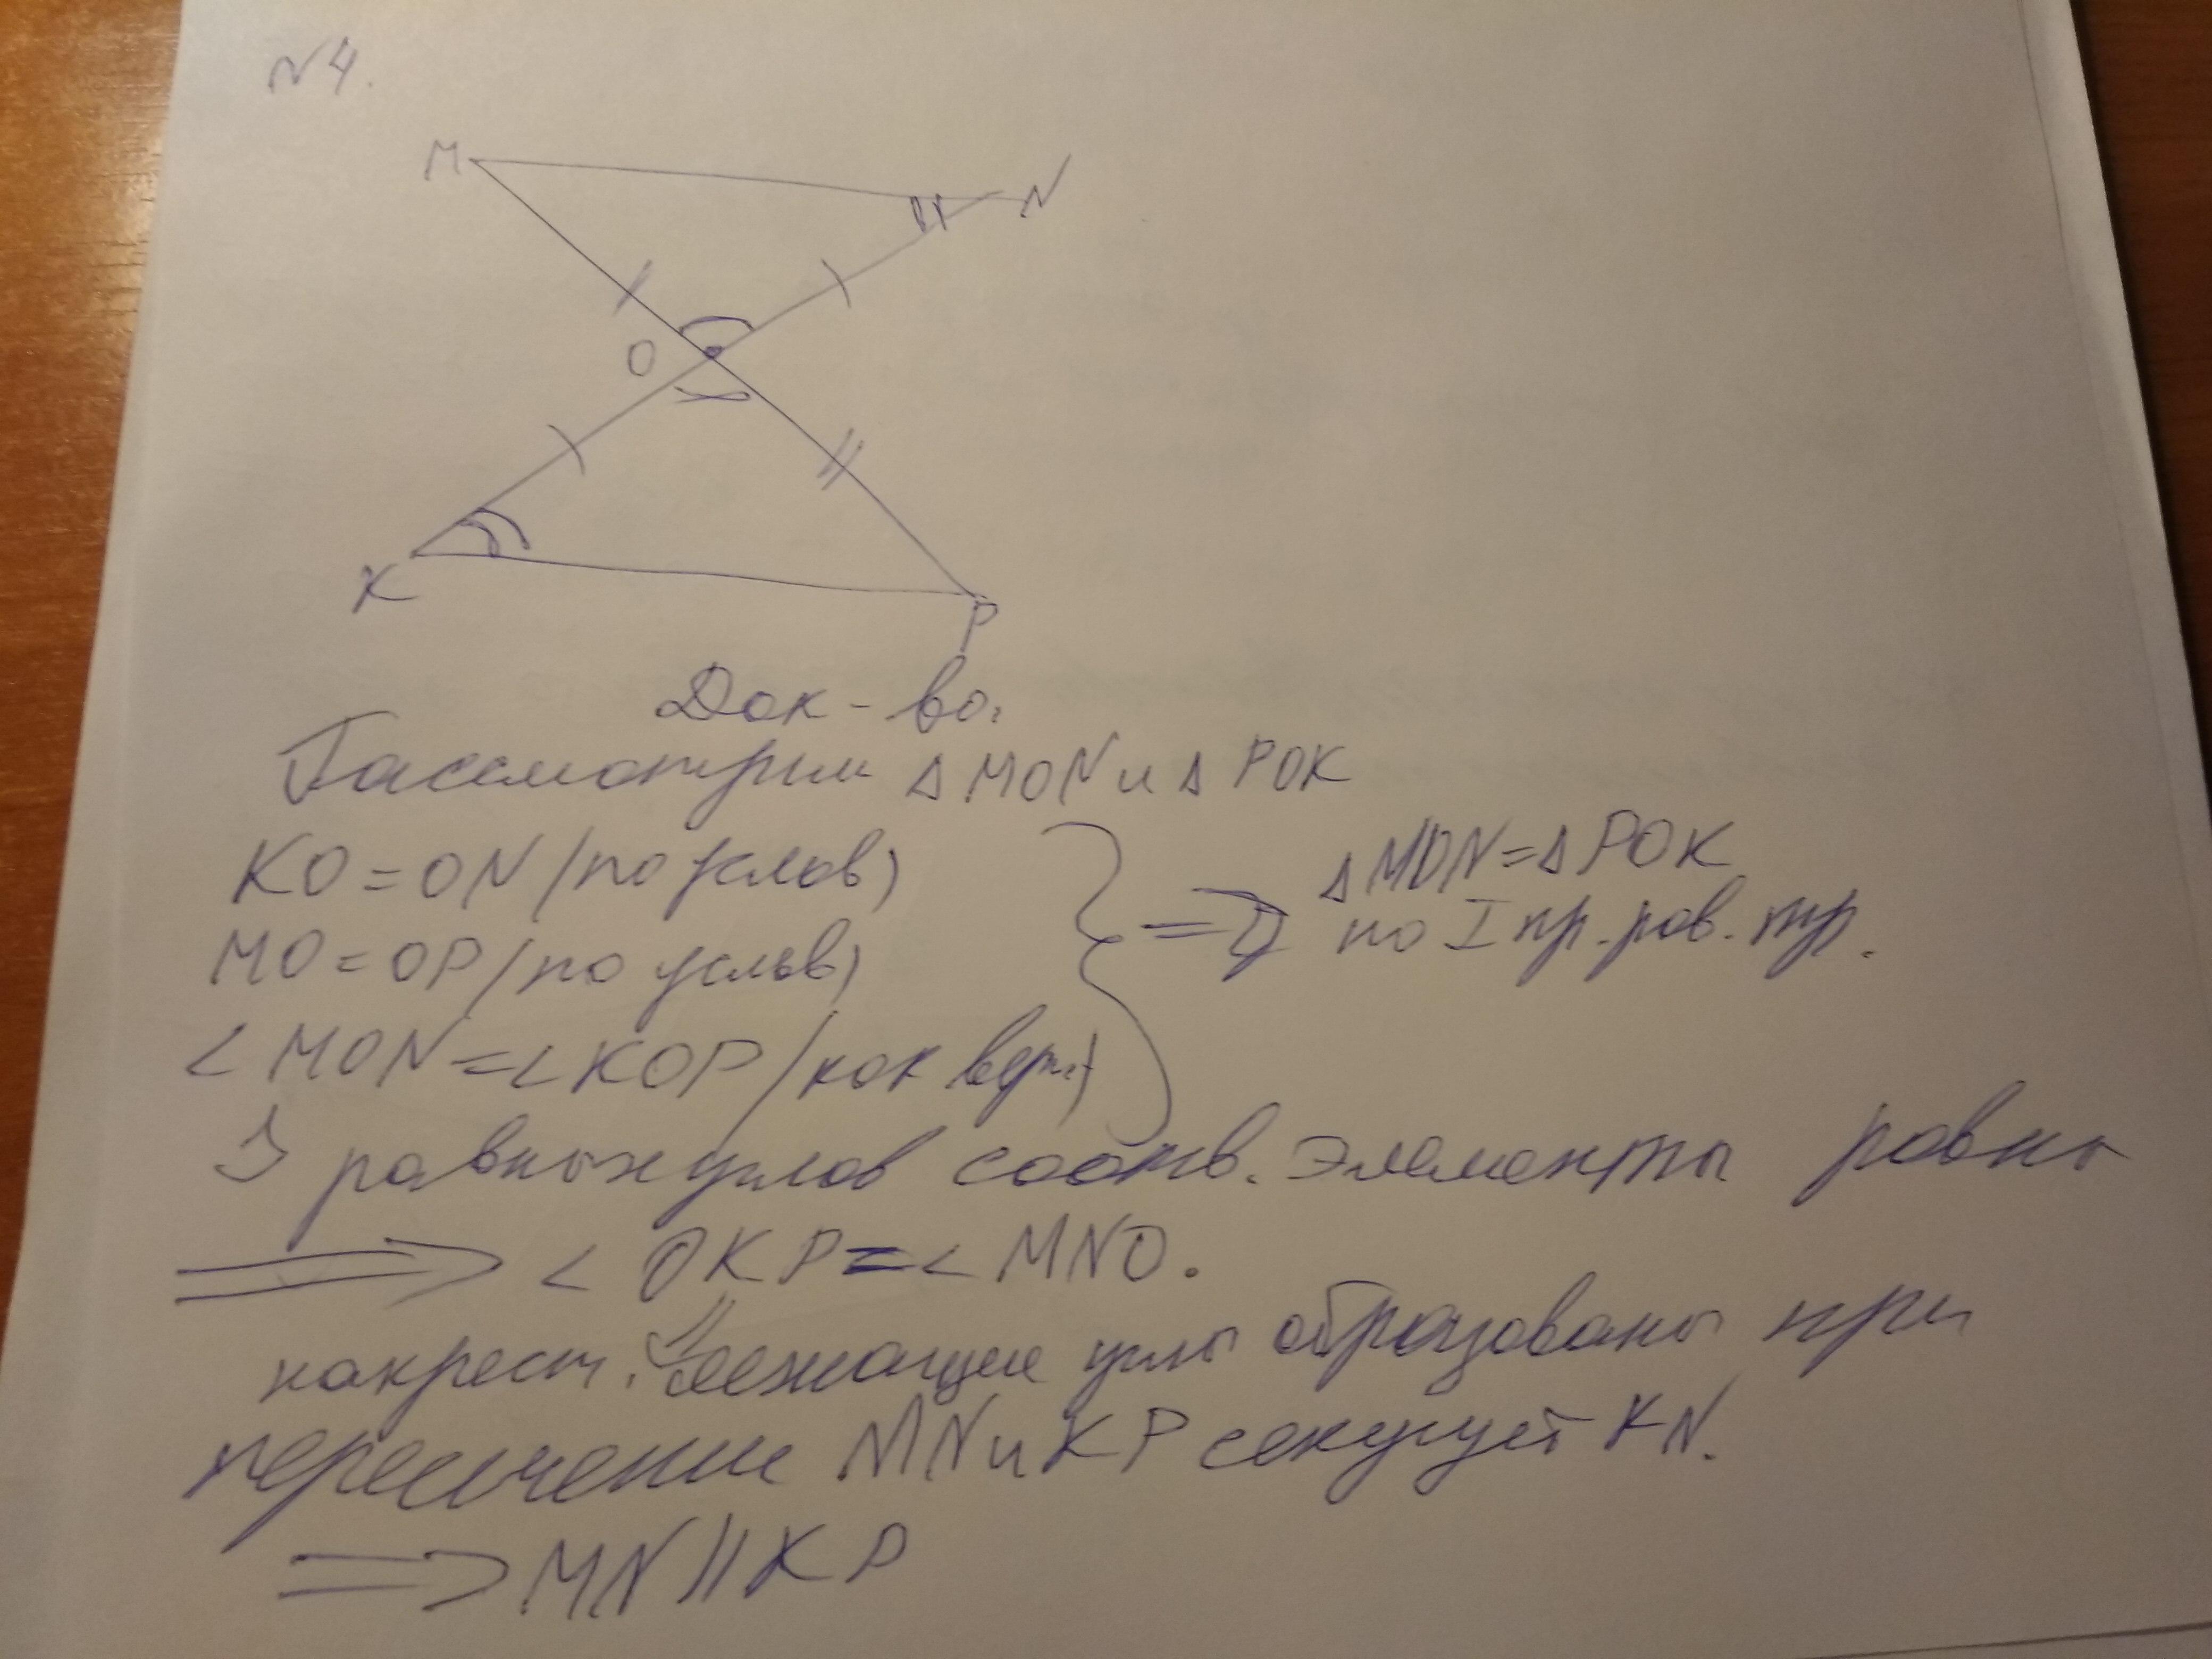 N4.
M
N
O
K
P
Док-во.
Рассмотрим Δ MON и Δ POK
KO=ON (по услов)
MO=OP (по услов)
<MON=<KOP (как верт.)
=> Δ MON=Δ POK
по I пр. рав. тр.
В равных углов соотв. элементы равны
=> < OKP=< MNO.
накрест. лежащие углы образованы при
пересечении MN и KP секущей KN.
=> MN||KP